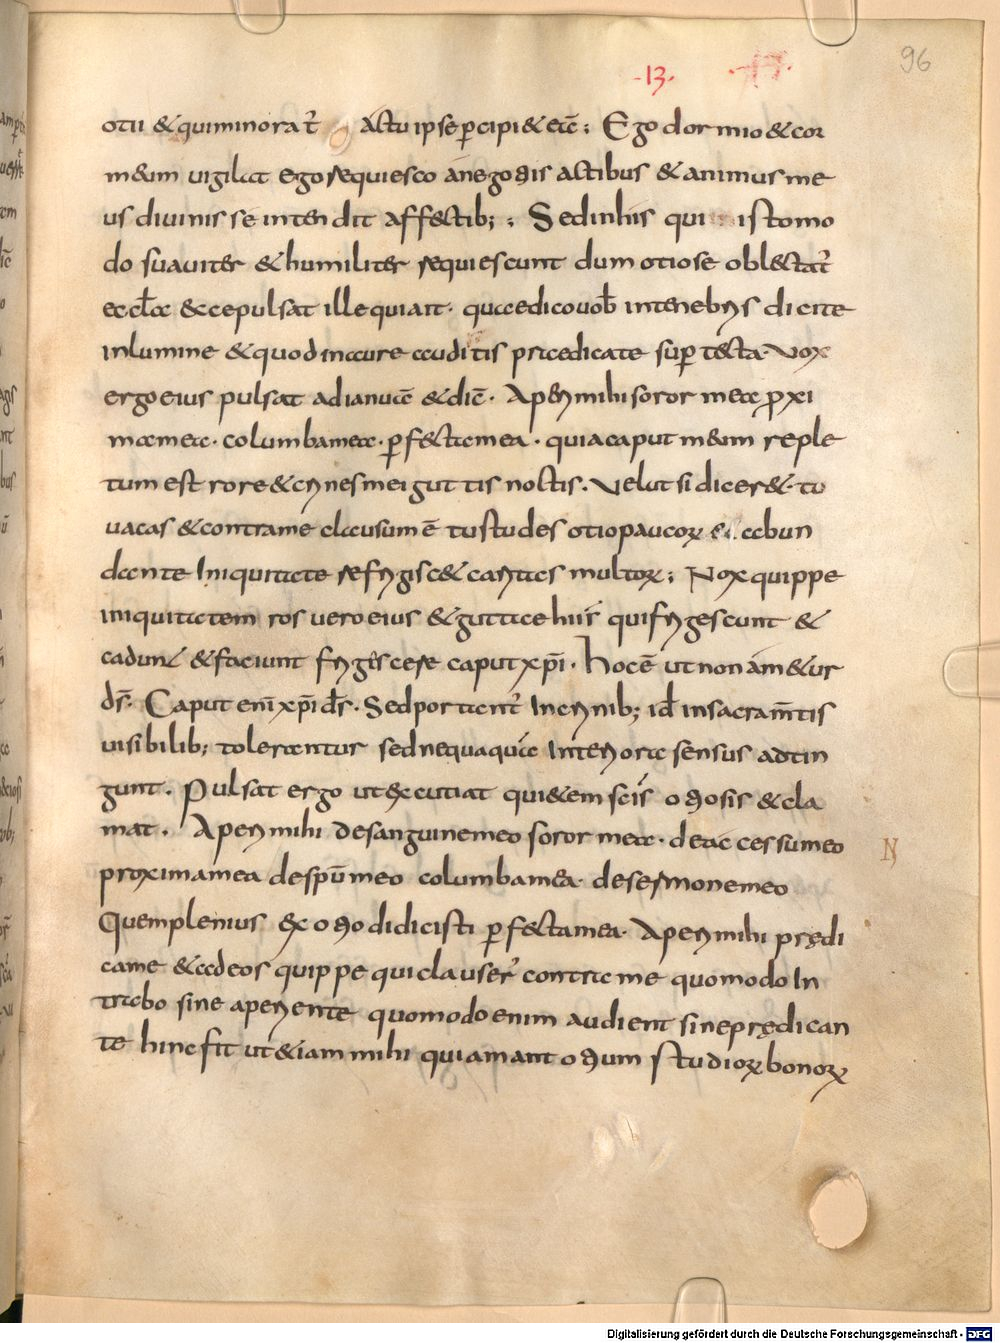 -13.
96
otii & quiminorat̄ actu ipse p̱cipi& etc̄; Ego dormio & cor
m&um uigilat ego requiesco anegotiis actibus & animus me
us diuinis se intendit affectib; ; Sedinhis qui istomo
do suauiter & humiliter requiescunt dum otiose oblectat̄
eccła & cepulsat ille quiait· quaedicouob̄ intenebris dicite
inlumine & quodinaure auditis praedicate sup̱ tecta· Vox
ergo eius pulsat adianuā & dic̄· Aperi mihi soror mea p̱xi
mamea· columbamea· p̱fectamea· quiacaput m&um reple
tum est rore & crines mei guttis noctis. Velut si dicer&· tu
uacas & contrame clausum ē tu studes otiopaucoꝝ & abun
dante Iniquitate refrigisc& caritas multoꝝ; Nox quippe
iniquitatem ros uero eius & guttae hii s̄ qui frigescunt &
cadunt & faciunt frigescere caput xp̄i· Hoc ē ut non am&ur
ds̄· Caput enī xp̄i ds̄· Sed portant̄ Incrinib; id ē insacram̄tis
uisibilib; tolerantur sed nequaquā Interiora sensus adtin
gunt· Pulsat ergo ut excutiat qui&em scīs otiosis & cla
mat· Aperi mihi desanguinemeo soror mea· deaccessumeo
proximamea despūmeo columbamea· desermonemeo
Quemplenius ex otio didicisti p̱fectamea· Aperi mihi prędi
came & adeos quippe qui clauser̄ contra me quomodo In
trabo sine aperiente quomodo enim audient sine prędican
te hinc fit ut & iam mihi qui amant otium studioꝝ bonoꝝ
Digitalisierung gefördert durch die Deutsche Forschungsgemeinschaft - DFG